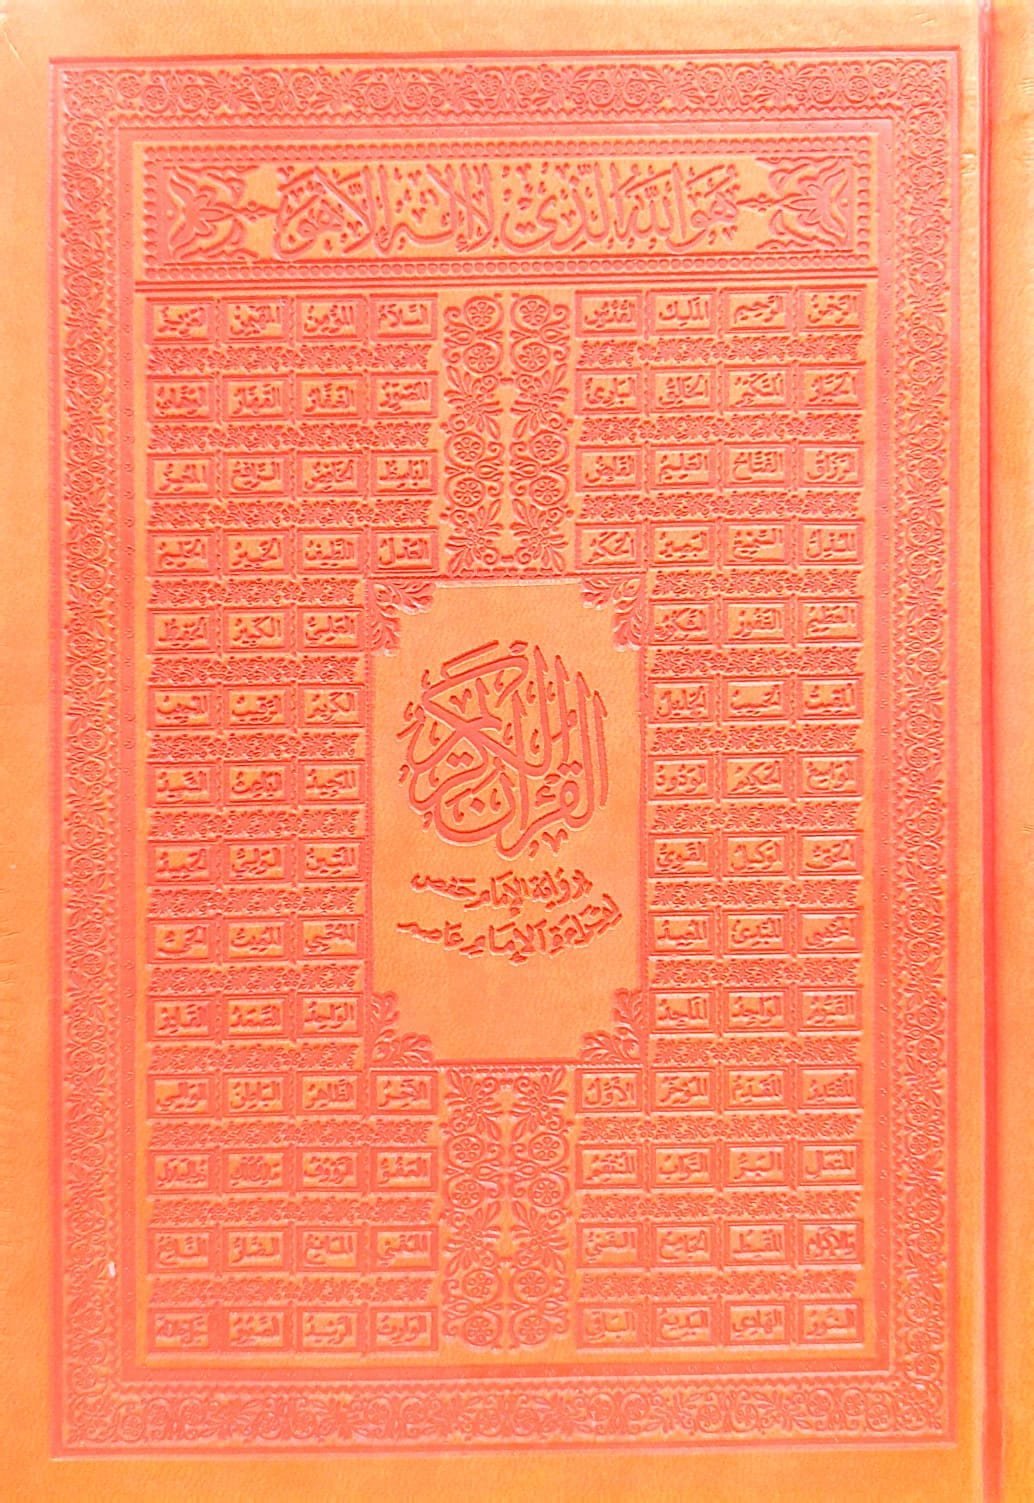 هُوَ اللهُ الَّذِي لَا إِلٰهَ إِلَّا هُوَ
الرحمن الرحيم الملك القدوس السلام المؤمن المهيمن العزيز
الجبار المتكبر الخالق البارئ المصور الغفار القهار الوهاب
الرزاق الفتاح العليم القابض الباسط الخافض الرافع المعز
المذل السميع البصير الحكم العدل اللطيف الخبير الحليم
العظيم الغفور الشكور العلي الكبير الحفيظ
المقيت الحسيب الجليل الكريم الرقيب المجيب
الواسع الحكيم الودود المجيد الباعث الشهيد
الحق الوكيل القوي المتين الولي الحميد
المحصي المبدئ المعيد المحيي المميت الحي
القيوم الواجد الماجد الواحد الصمد القادر
القرآن الكريم
برواية الإمام حفص
لقراءة الإمام عاصم
المقتدر المقدم المؤخر الأول الآخر الظاهر الباطن الوالي
المتعال البر التواب المنتقم العفو الرؤوف
والإكرام المقسط الجامع الغني المغني المانع الضار النافع
النور الهادي البديع الباقي الوارث الرشيد الصبور